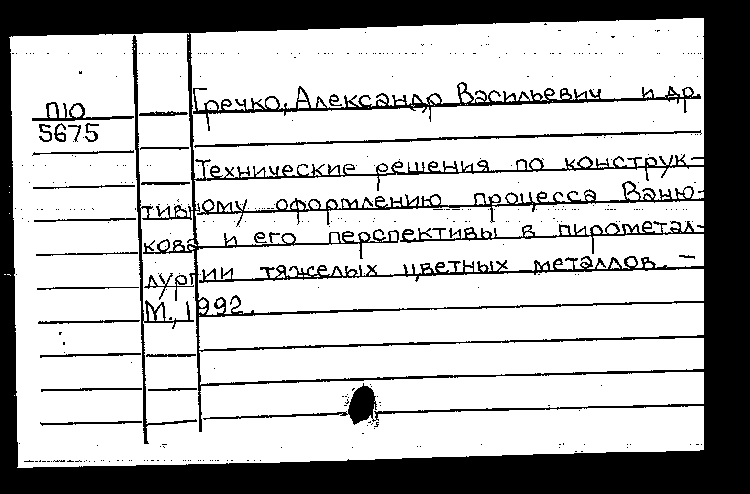 П10
5675
Гречко, Александр Васильевич и др.
Технические решения по конструк-
тивному оформлению процесса Ваню-
кова и его перспективы в пирометал-
лургии тяжелых цветных металлов. –
М., 1992.